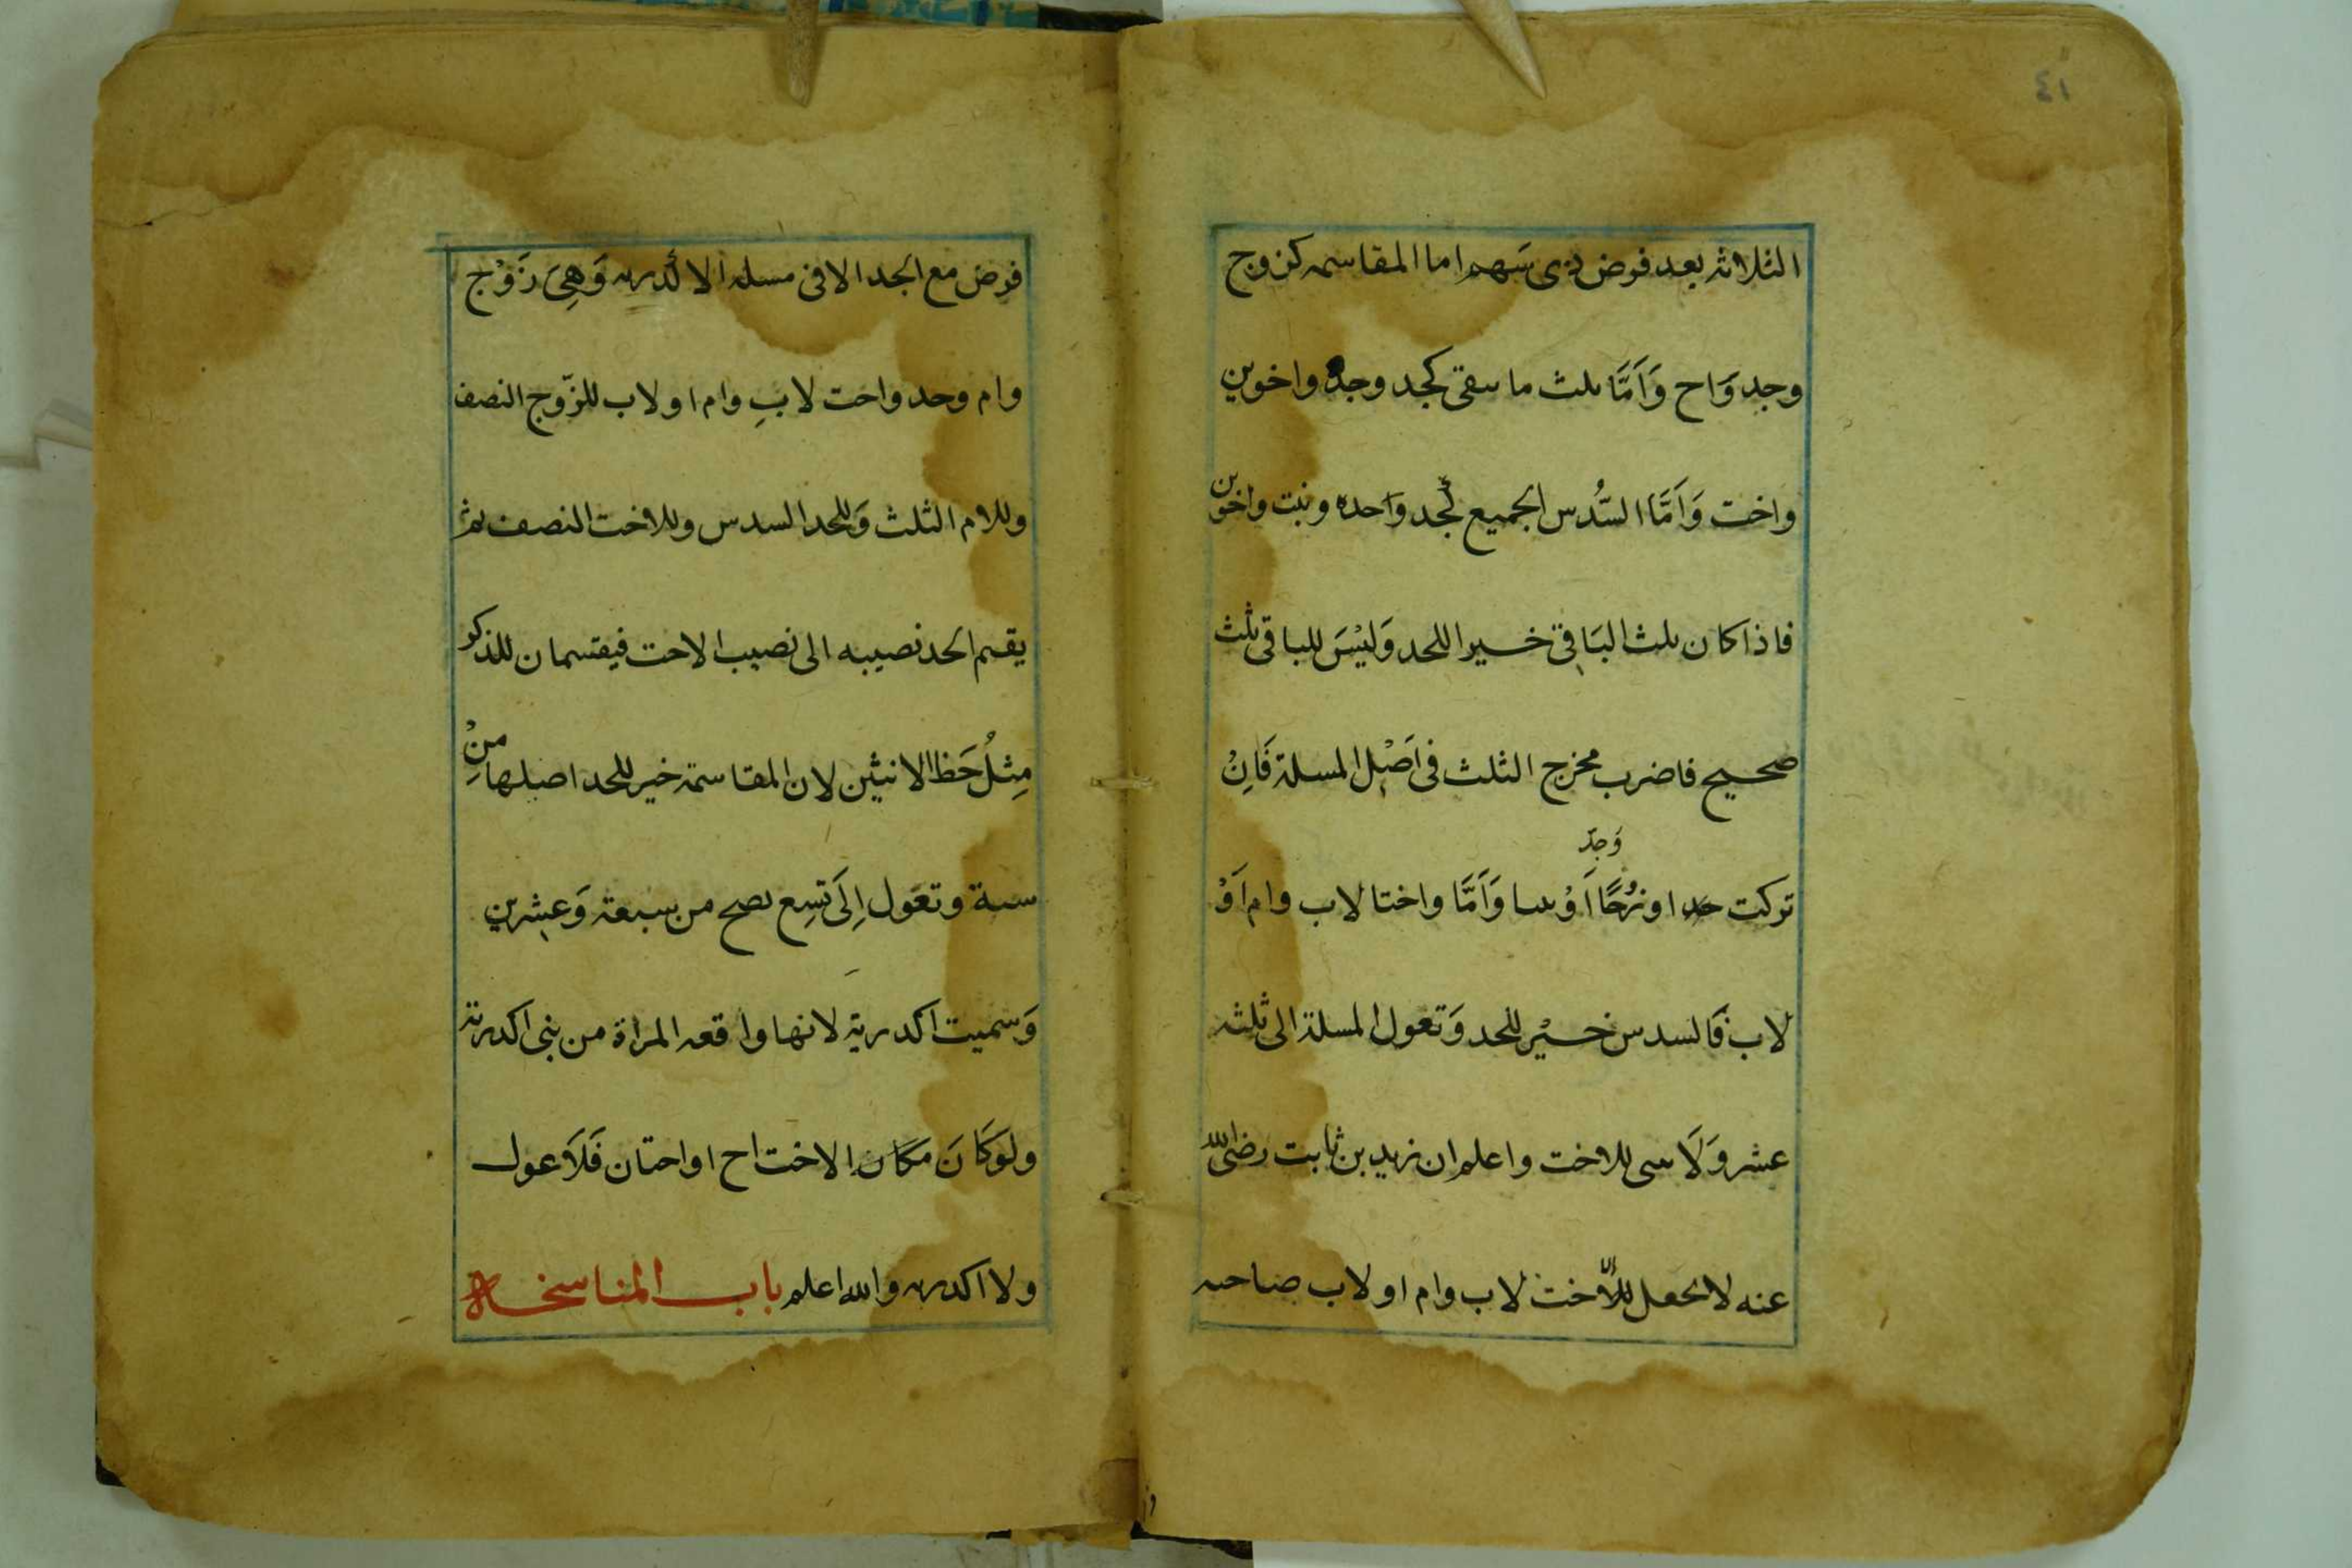 ٤١
الثلاثة بعد فرض ذى سَهم اما المقاسمه كزوج
وجد وَاح وَاَمَّا ثلث ما يبقى كجد وجده واخوين
واخت وَاَمَّا السُّدس الجميع كجد وَاحده وبنت واخوين
فاذا كان ثلث البَاقِى خـيرا للجد وَليْسَ للباقى ثلث
صحـيح فاضرب مخرج الثلث فى اَصْل المسلة فَاِنْ
وَجدّ
تركت جدا او زوجًا اَوْ بنتا وَاَمَّا واختا لاب وام اَوْ
لاب فَالسدس خـيْر للجد وَتعول المسلة الى ثلثه
عشر وَلَا شى للاخت واعلم ان زيد بن ثابت رضى الله
عنه لا يجعل للاخت لاب وام او لاب صاحبه
فرض مع الجد الا فى مسله الاكدريه وَهِىَ زَوْج
وام وجد واخت لابِ وام او لاب للزّوج النصف
وللام الثلث وَللجد السدس وللاخت النصف ثم
يقسم الجد نصيبه الى نصيب الاخت فيقتسمان للذكر
مِثلُ حَظ الانثيين لان المقاسمة خير للجد اصلها مِنْ
ستة وتعَول اِلَى تسِع تصح من سبعة وَعشرين
وَسميت اكدرية لانها واقعه المراة من بنى اكدرية
ولوَكَانَ مَكان الاخت اح او اختان فَلَا عول
ولا اكدريه والله اعلم باب المناسخـة